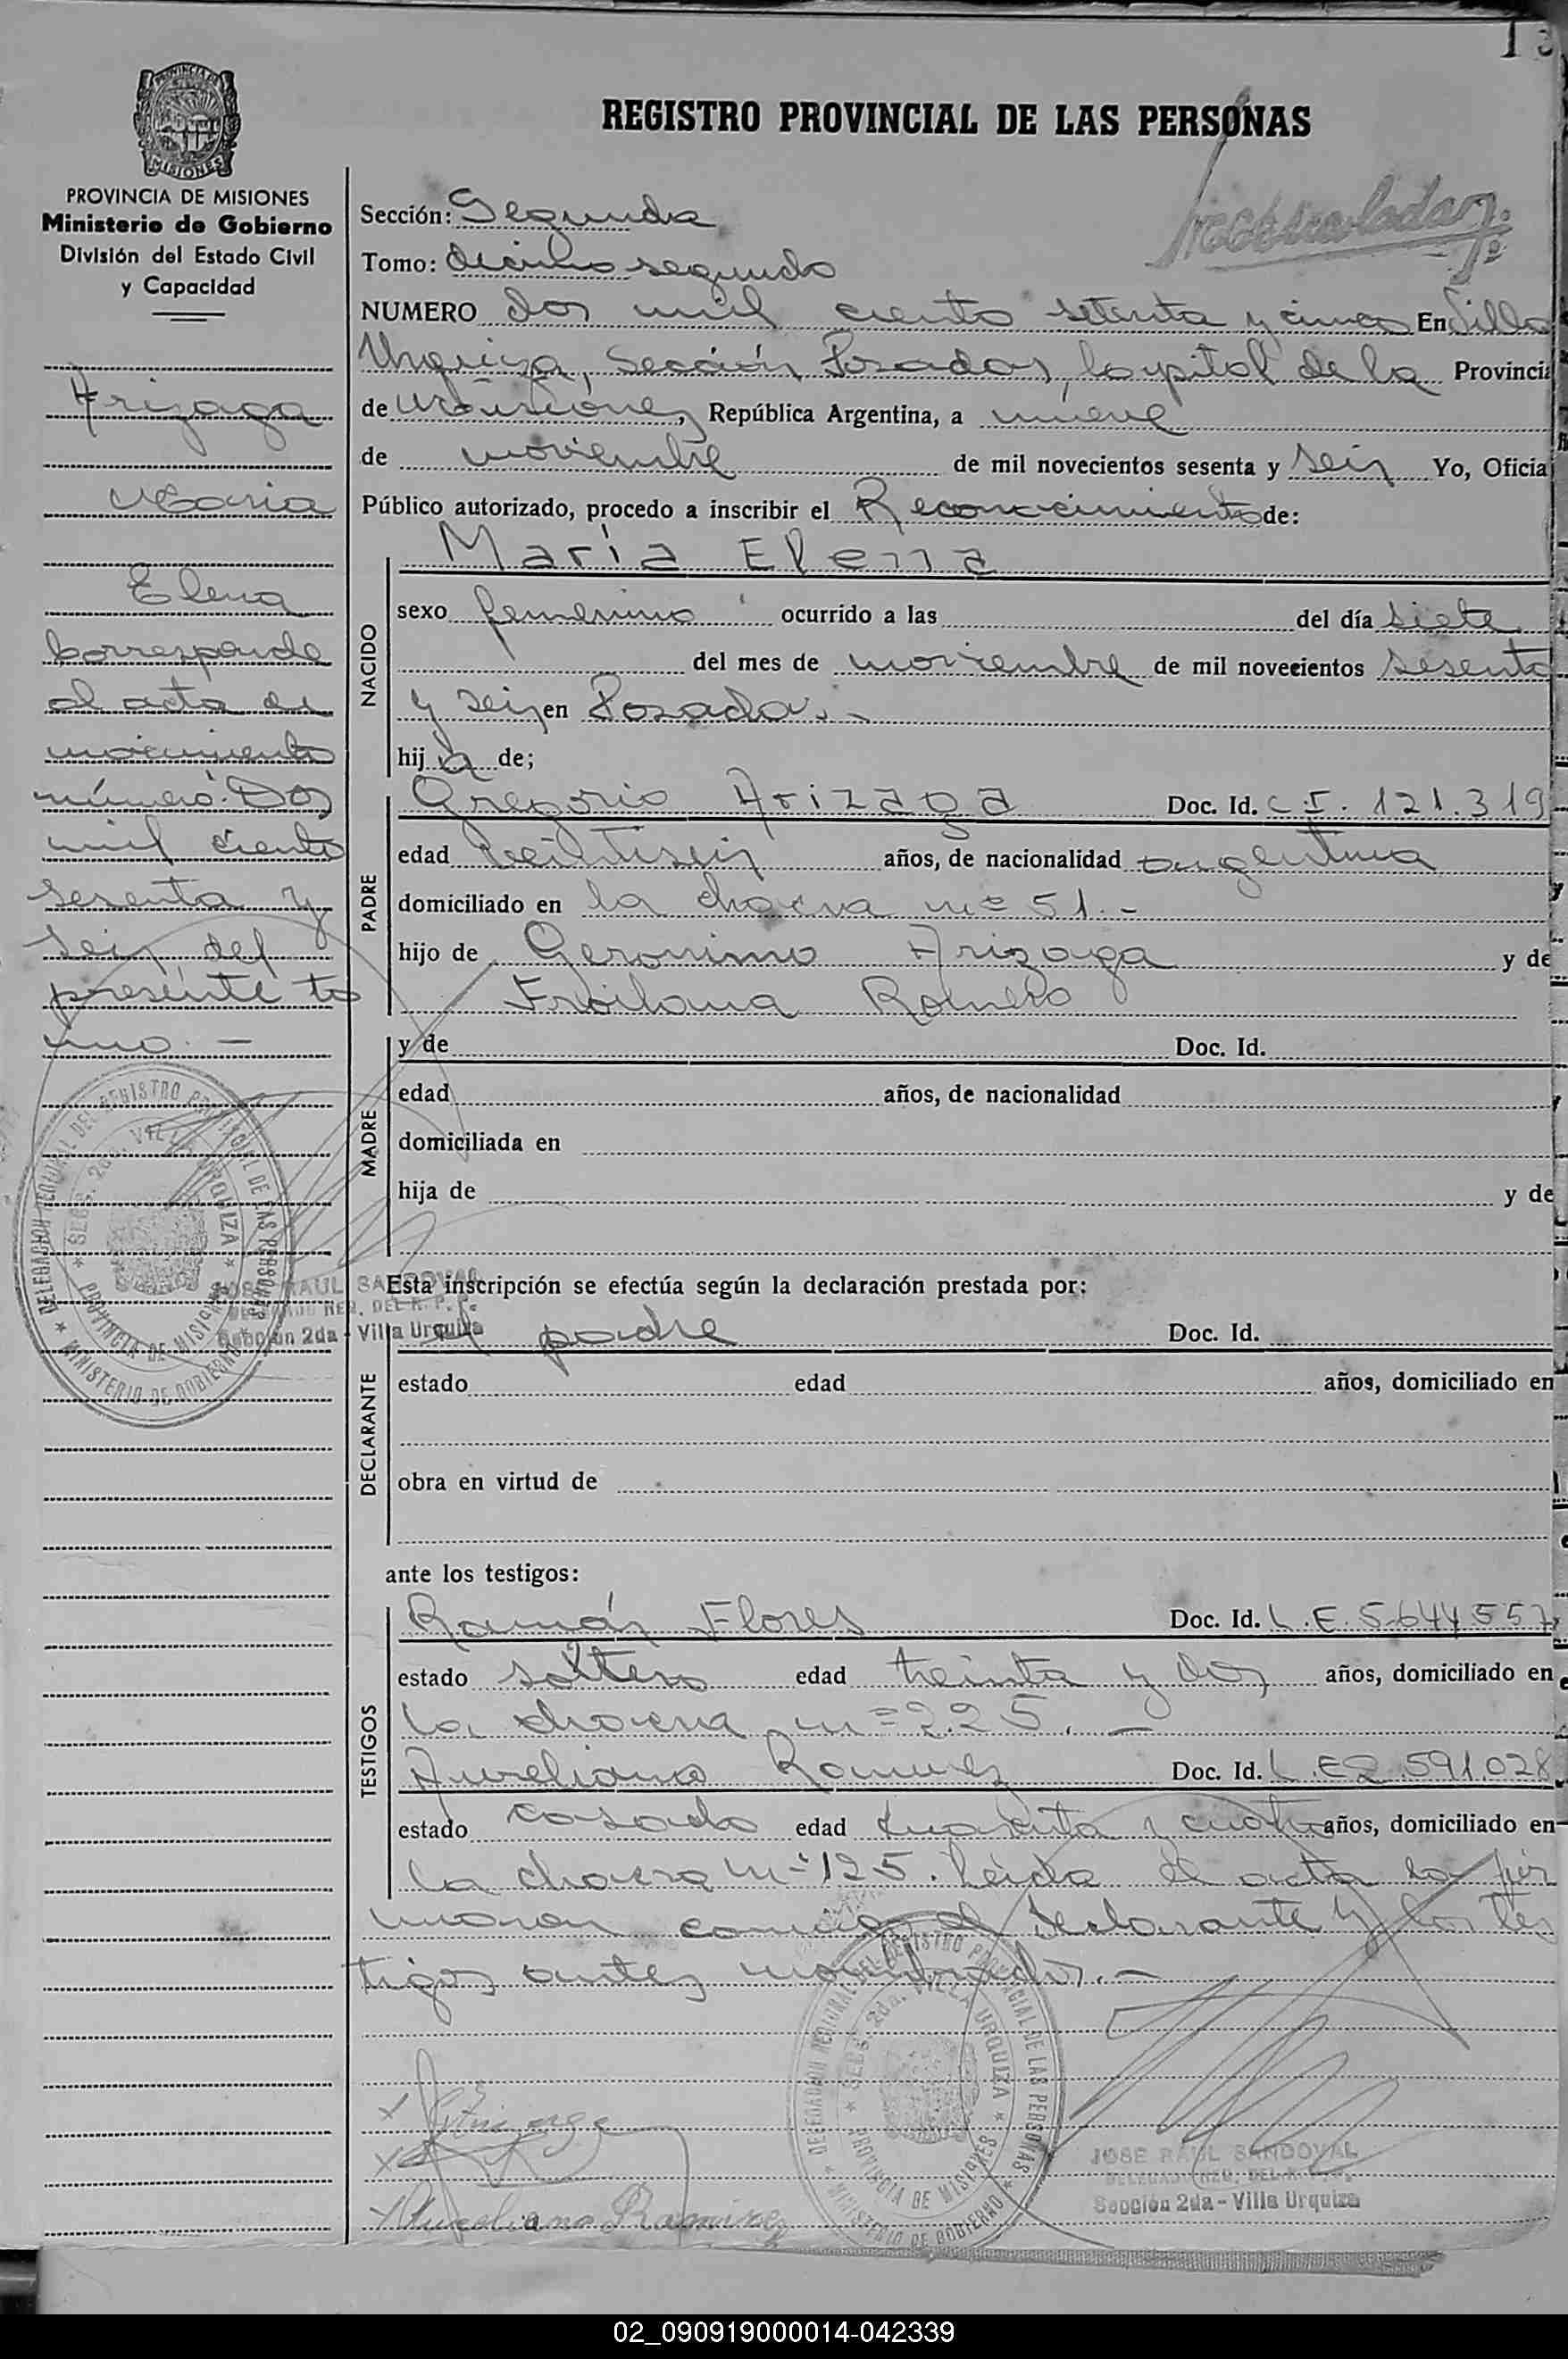 13
REGISTRO PROVINCIAL DE LAS PERSONAS
MISIONES
PROVINCIA DE MISIONES
Ministerio de Gobierno
División del Estado Civil
y Capacidad
Arizaga
Maria
Elena
Corresponde
al acta de
nacimiento
número Dos
mil ciento
sesenta y
seis del
presente to
mo. -
Sección: Segunda
Tomo: décimo segundo
NUMERO dos mil ciento setenta y cinco En Villa
Urquiza, Sección Posadas, Capital de la Provincia
de Misiones, República Argentina, a nueve
de noviembre de mil novecientos sesenta y seis Yo, Oficial
Público autorizado, procedo a inscribir el Reconocimiento de:
NACIDO
María Elena
sexo femenino ocurrido a las del día siete
del mes de noviembre de mil novecientos sesenta
y seis en Posadas.-
hija de;
PADRE
Gregorio Arizaga Doc. Id. C.I. 121.319
edad veintiseis años, de nacionalidad argentina
domiciliado en la chacra nº 51.-
hijo de Geronimo Arizaga y de
Froilana Romero
MADRE
y de Doc. Id.
edad años, de nacionalidad
domiciliada en
hija de y de
Esta inscripción se efectúa según la declaración prestada por:
DECLARANTE
el padre Doc. Id.
estado edad años, domiciliado en
obra en virtud de
ante los testigos:
TESTIGOS
Ramón Flores Doc. Id. L.E. 5644557
estado soltero edad treinta y dos años, domiciliado en
la chacra nº 225. -
Aureliano Ramirez Doc. Id. L.E 2.591.028
estado casado edad cuarenta y cuatro años, domiciliado en
la chacra nº 125. Leida el acta la fir
maron conmigo el declarante y los tes
tigos antes nombrados.-
DELEGACION REGIONAL DEL REGISTRO PROVINCIAL DE LAS PERSONAS
SECC. 2da. VILLA URQUIZA
PROVINCIA DE MISIONES
MINISTERIO DE GOBIERNO
JOSE RAUL SANDOVAL
DELEGADO REG. DEL R. P. P.
Sección 2da - Villa Urquiza
DELEGACION REGIONAL DEL REGISTRO PROVINCIAL DE LAS PERSONAS
SECC. 2da. VILLA URQUIZA
PROVINCIA DE MISIONES
MINISTERIO DE GOBIERNO
x Arizaga
x
x Aureliano Ramirez
JOSE RAUL SANDOVAL
DELEGADO REG. DEL R. P. P.
Sección 2da - Villa Urquiza
02_090919000014-042339